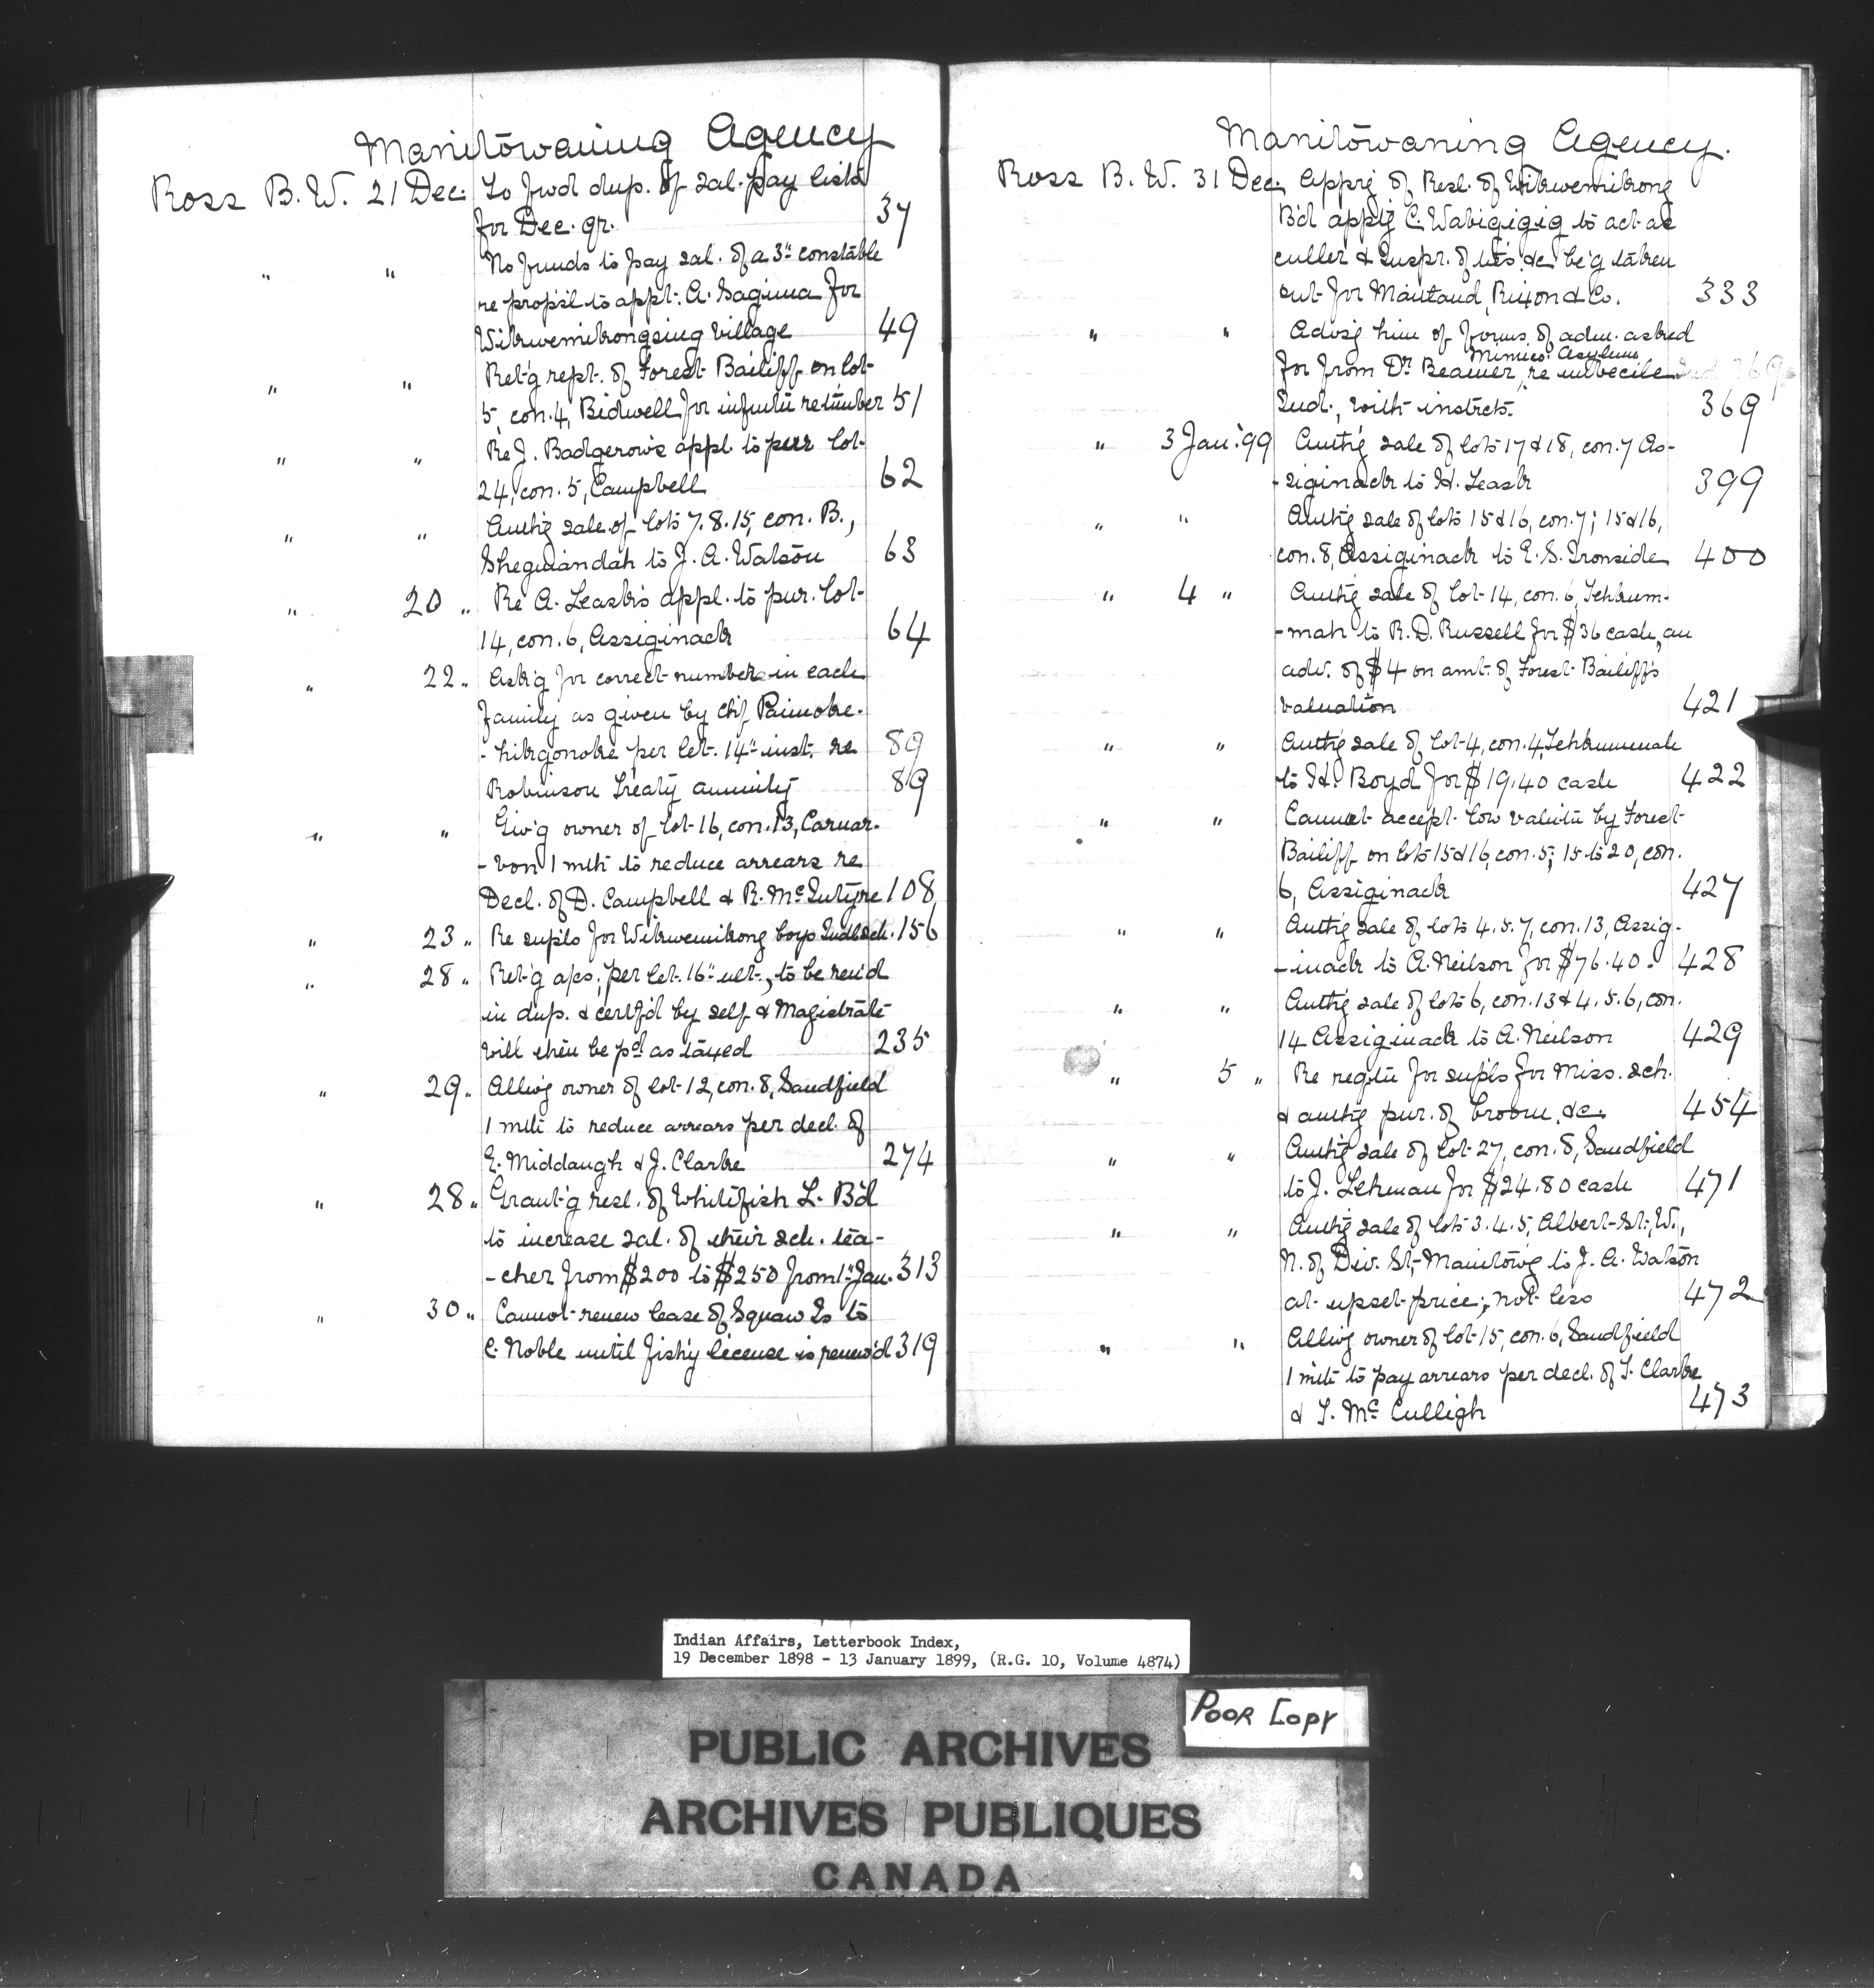 Manitowaning Agency
Ross B. W. 21 Dec. To fwd dup. of sal. pay lists
for Dec. qr. 37
" " No funds to pay sal. of a 3" constable
re prop'sl to appt. A. Sagima for
Wikwemikongsing Village 49
" " Ret'g rept. of Forest Bailiff on lot
5, con. 4, Bidwell for infmtn re timber 51
" " Re J. Badgerow's appl. to pur lot
24, con. 5, Campbell 62
" " Auth'g sale of lots 7. 8. 15, con. B.,
Sheguiandah to J. A. Watson 63
" 20 " Re A. Leask's appl. to pur. lot
14, con. 6, Assiginack 64
" 22 " Ask'g for correct numbers in each
family as given by chf
per let. 14" inst. re 89
Robinson Treaty annuity 89
" " Giv'g owner of lot 16, con. 13, Carnar-
-von 1 mth to reduce arrears re
Decl. of D. Campbell & R. McIntyre 108
" 23 " Re supls for Wikwemikong boys Indl sch. 156
" 28 " Ret'g a/cs, per let. 16" ult., to be ren'd
in dup. & certf'd by self & Magistrate
will then be pd as taxed 235
" 29 " Allw'g owner of lot 12, con. 8, Sandfield
1 mth to reduce arrears per decl. of
E. Middaugh & J. Clarke 274
" 28 " Grant'g resl. of Whitefish L. B'd
to increase sal. of their sch. tea-
-cher from $200 to $250 from 1" Jan. 313
" 30 " Cannot renew lease of Squaw Is to
C. Noble until fish'g license is renew'd 319
Manitowaning Agency.
Ross B. W. 31 Dec. App'g of Resl. of Wikwemikong
B'd appt'g C. Wabigigig to act as
culler & Inspr. of ties &c be'g taken
out for Maitland, Rixon & Co. 333
" " Advis'g him of forms of adm. asked
for from Dr. Beamer, Mimico Asylum re imbecile
Ind., with instrcts. 369
" 3 Jan. '99 Auth'g sale of lots 17 & 18, con. 7 As-
-siginack to H. Leask 399
" " Auth'g sale of lots 15 & 16, con. 7; 15 & 16,
con. 8, Assiginack to E. S. Ironside 400
" 4 " Auth'g sale of lot 14, con. 6, Tehkum-
-mah to R. D. Russell for $36 cash, an
adv. of $4 on amt. of Forest Bailiff's
valuation 421
" " Auth'g sale of lot 4, con. 4, Tehkummah
to H. Boyd for $19.40 cash 422
" " Cannot accept low valutn by Forest
Bailiff on lots 15 & 16, con. 5; 15 to 20, con.
6, Assiginack 427
" " Auth'g sale of lots 4. 5. 7, con. 13, Assig-
-inack to A. Neilson for $76.40. 428
" " Auth'g sale of lots 6, con. 13 & 4. 5. 6, con.
14 Assiginack to A. Neilson 429
" 5 " Re reqtn for supls for Miss. sch.
& auth'g pur. of broom, &c. 454
" " Auth'g sale of lot 27, con. 8, Sandfield
to J. Lehman for $24.80 cash 471
" " Auth'g sale of lots 3. 4. 5, Albert St., W.,
N. of Div. St., Manitow'g to J. A. Watson
at upset price; not less 472
" " Allw'g owner of lot 15, con. 6, Sandfield
1 mth to pay arrears per decl. of T. Clarke
& T. McCulligh 473
Indian Affairs, Letterbook Index,
19 December 1898 - 13 January 1899, (R.G. 10, Volume 4874)
POOR COPY
PUBLIC ARCHIVES
ARCHIVES PUBLIQUES
CANADA